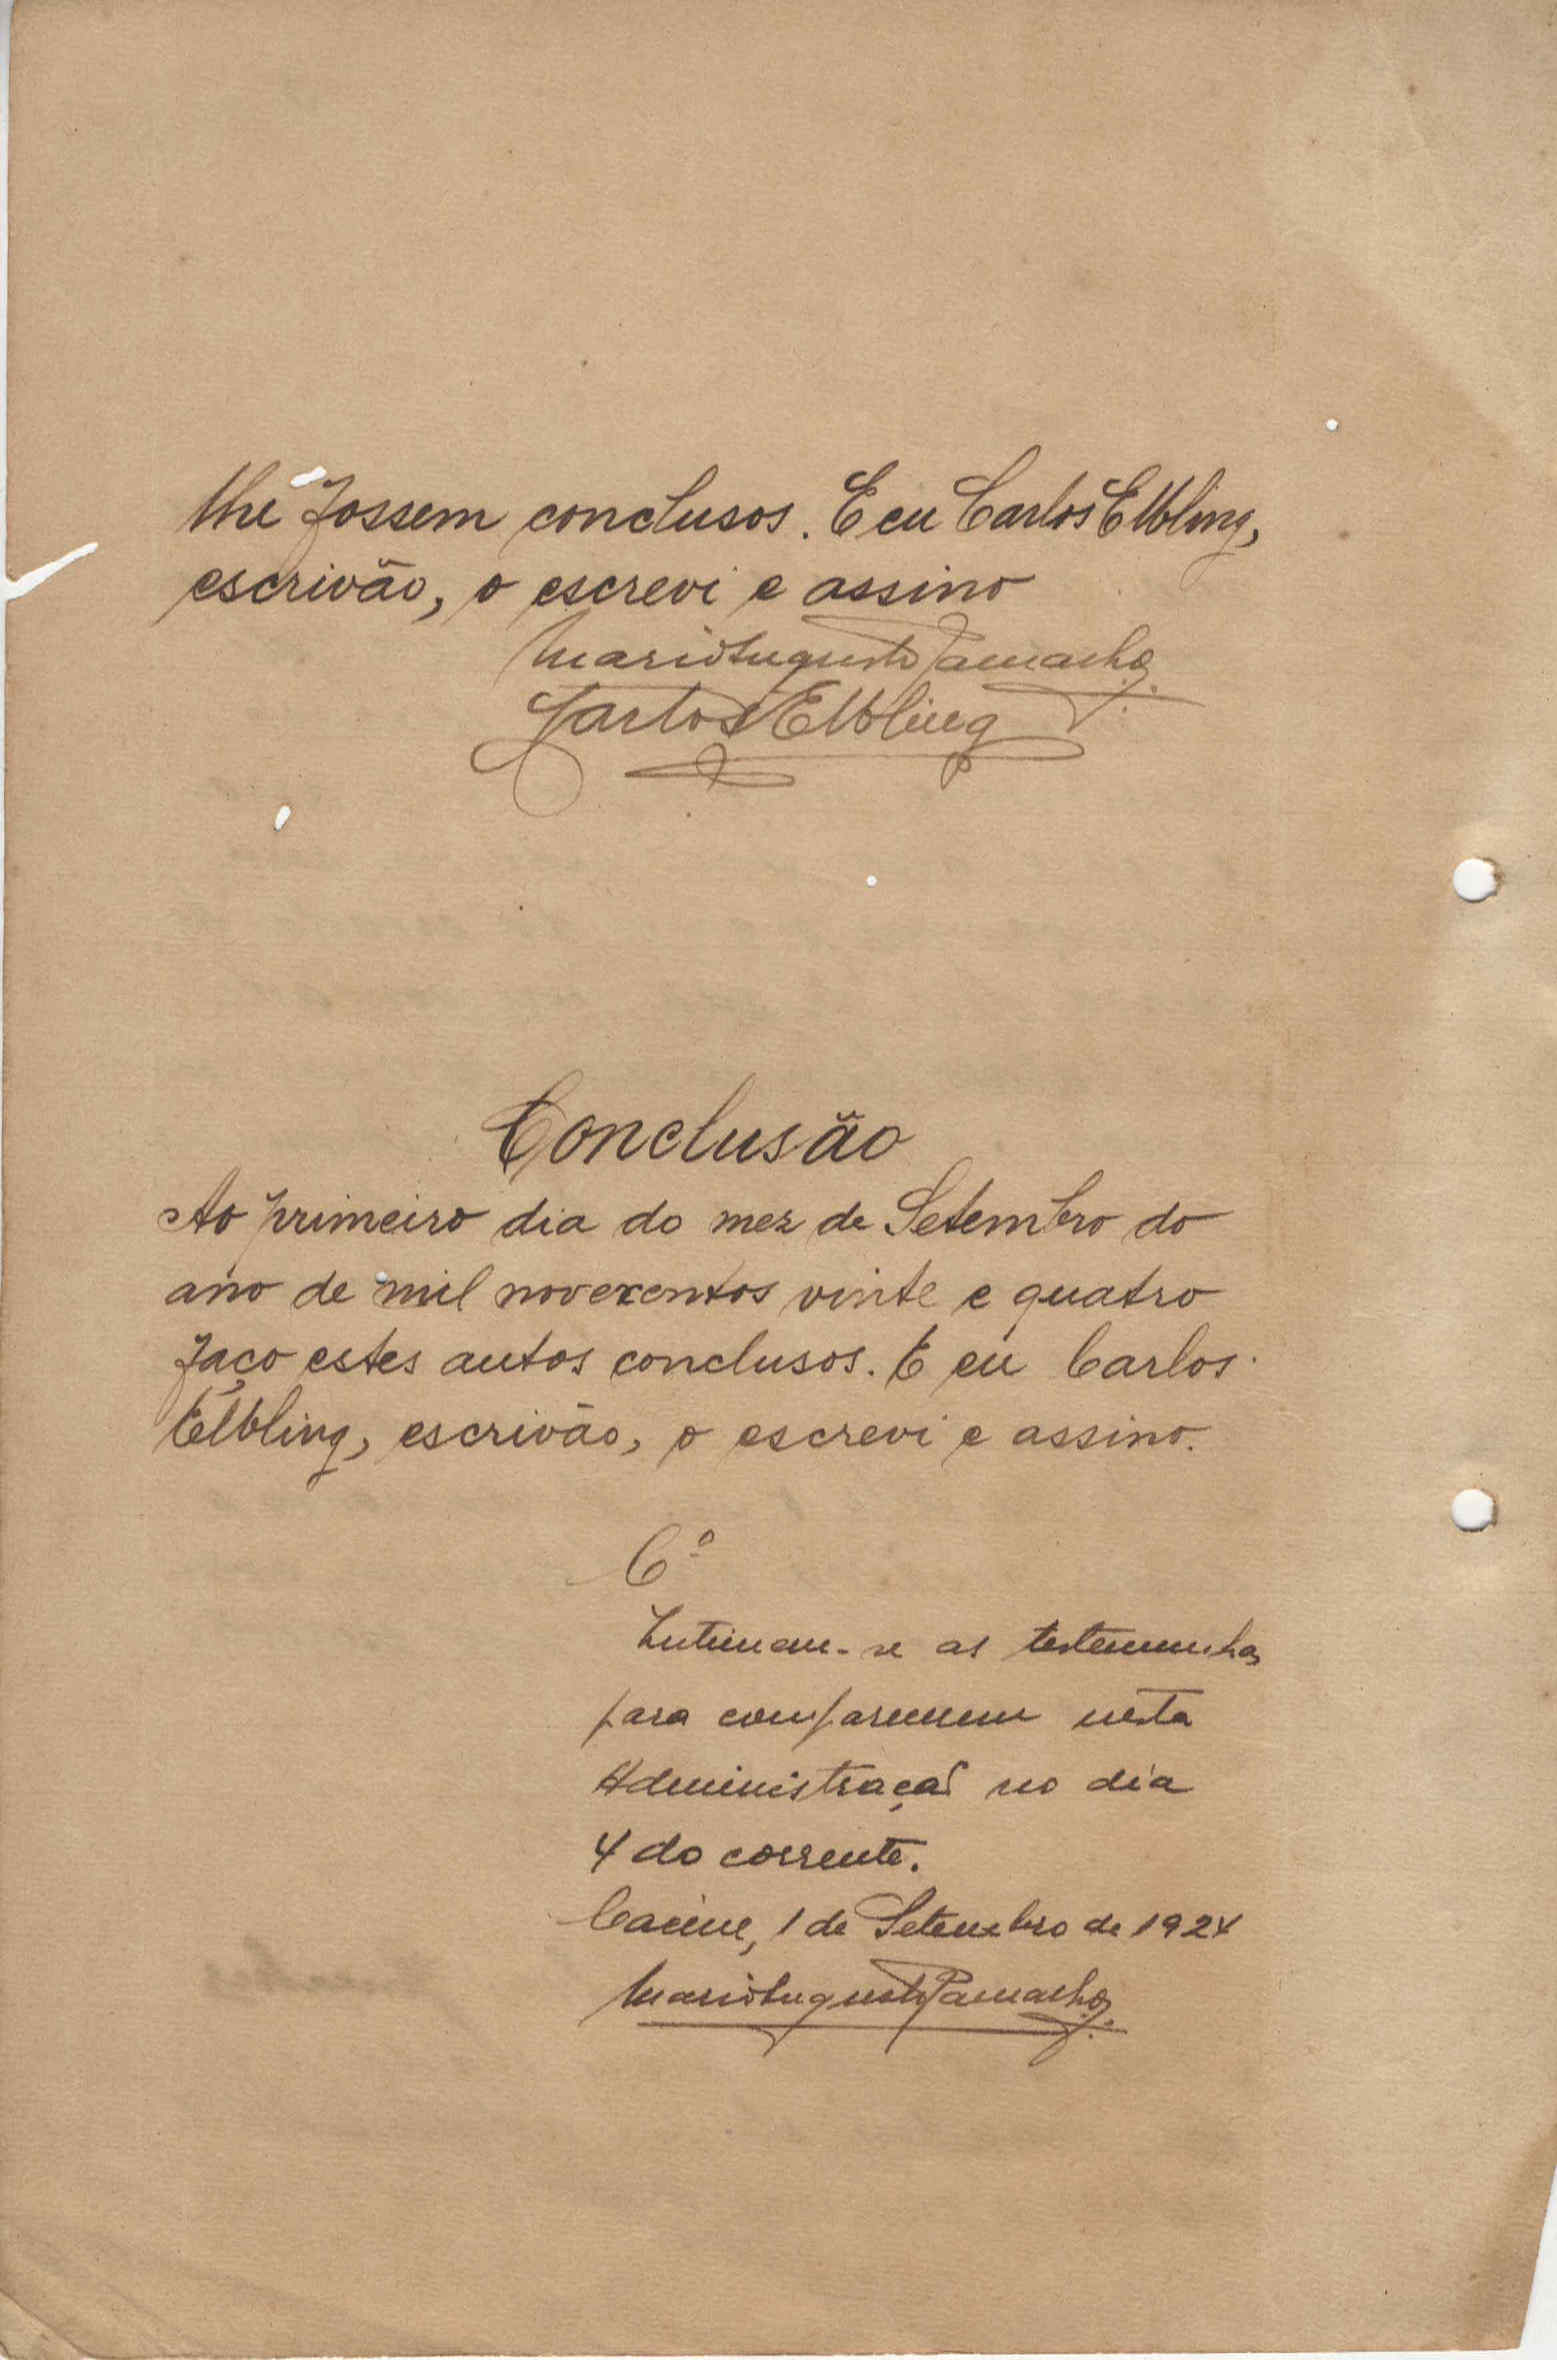 lhe fossem conclusos. E eu Carlos Elbling,
escrivão, o escrevi e assino
Mario Augusto Camacho
Carlos Elbling
Conclusão
Ao primeiro dia do mez de Setembro do
ano de mil novecentos vinte e quatro
faço estes autos conclusos. E eu Carlos
Elbling, escrivão, o escrevi e assino.
Cº
Intimem-se as testemunhas
para comparecerem nesta
Administração no dia
4 do corrente.
Cacine, 1 de Setembro de 1924
Mario Augusto Camacho